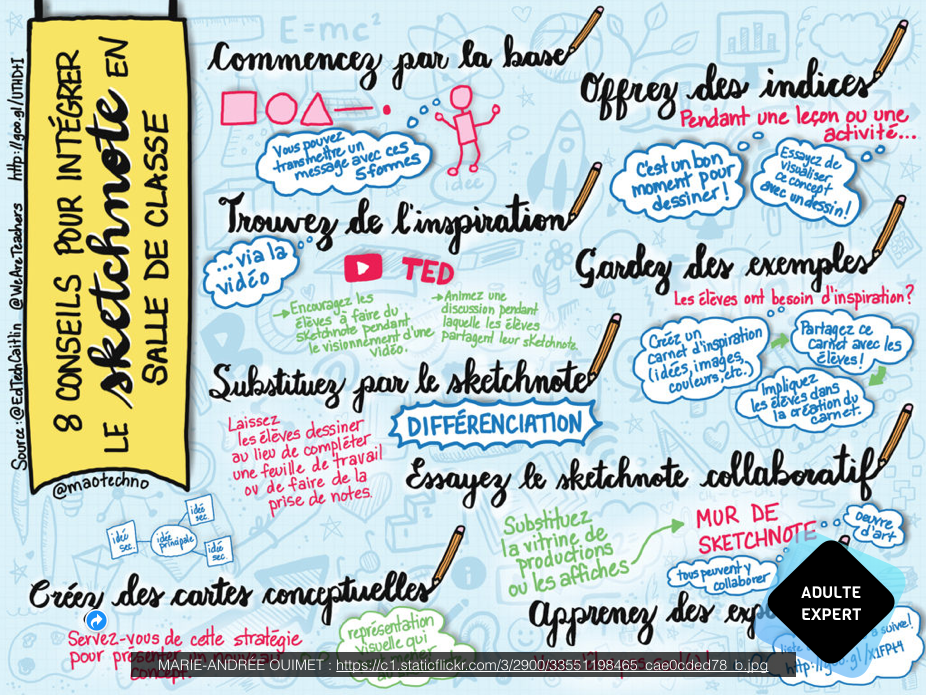 8 CONSEILS POUR INTÉGRER
LE sketchnote EN
SALLE DE CLASSE
Source : @EdTechCaitlin @WeAreTeachers http://goo.gl/UTHD1I
@maotechno
Commencez par la base
Vous pouvez
transmettre un
message avec ces
5 formes
E=mc²
idée
Trouvez de l'inspiration
... via la
vidéo
TED
→Encouragez les
élèves à faire du
sketchnote pendant
le visionnement d'une
vidéo.
→Animez une
discussion pendant
laquelle les élèves
partagent leur sketchnote.
Substituez par le sketchnote
DIFFÉRENCIATION
Laissez
les élèves dessiner
au lieu de compléter
une feuille de travail
ou de faire de la
prise de notes.
idée
sec.
idée
principale
idée
sec.
idée
sec.
Créez des cartes conceptuelles
Servez-vous de cette stratégie
pour présenter un nouveau
concept.
représentation
visuelle qui
Offrez des indices
Pendant une leçon ou une
activité...
C'est un bon
moment pour
dessiner !
Essayez de
visualiser
ce concept
avec un dessin !
Gardez des exemples
Les élèves ont besoin d'inspiration?
Créez un
carnet d'inspiration
(idées, images,
couleurs, etc.)
Partagez ce
carnet avec les
élèves !
Impliquez
les élèves dans
la création du
carnet.
Essayez le sketchnote collaboratif
Substituez
la vitrine de
productions
ou les affiches
MUR DE
SKETCHNOTE
oeuvre
d'art
tous peuvent y
collaborer
Apprenez des
à suivre!
liste
http://goo.gl/
ADULTE
EXPERT
MARIE-ANDRÉE OUIMET : https://c1.staticflickr.com/3/2900/33551198465_cae0cded78_b.jpg